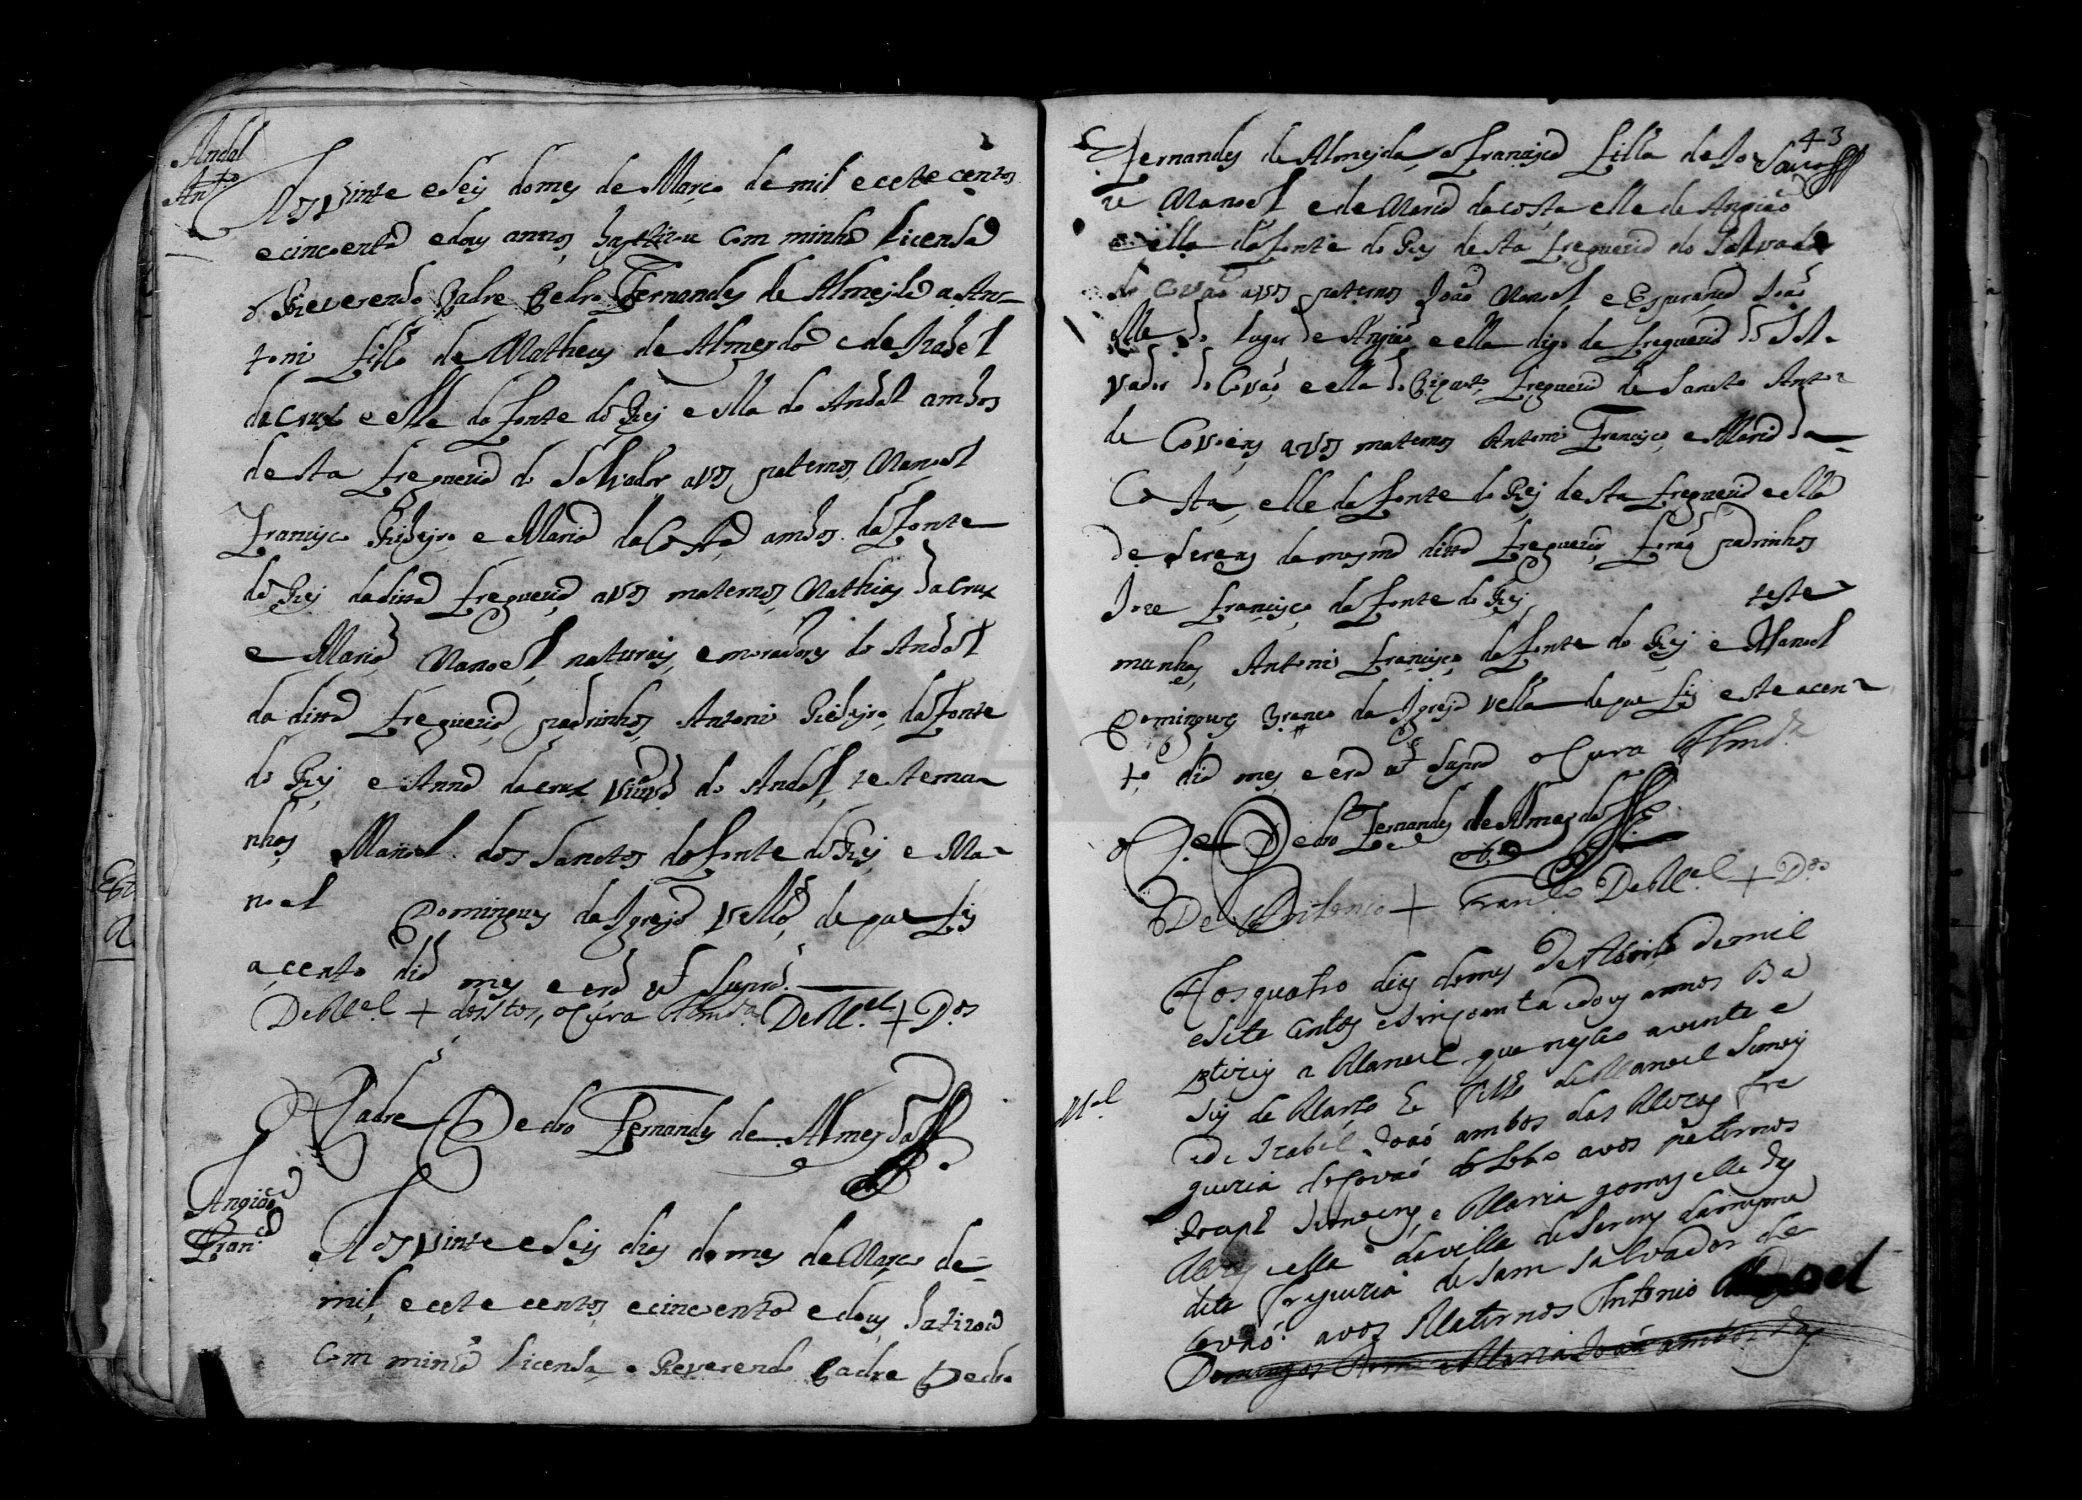 Andal
Ant.o
Aos vinte e seis do mes de Março de mil e cete centos
e cincoenta e dous annos baptizou Com minha Licensa
o Reverendo Padre Pedro Fernandes de Almejda a An-
tonio filho de Matheus de Almeyda e de Izabel
da Crux elle da Fonte do Rej e ella do Andal ambos
desta freguezia do Salvador avos paternos Manoel
Francisco Ribejro e Maria da Costa ambos da Fonte
do Rej da ditta freguezia avos maternos Mathias da Crux
e Maria Manoel naturais e moradores do Andal
da ditta freguezia padrinhos Antonio Ribejro da Fonte
do Rej e Anna da Crux viuva do Andal testemu-
nhas Manoel dos Sanctos da Fonte do Rej e Ma-
noel Domingues da Igreja Velha de que fis
acento dia mes e era ut supra
De M.el + dos S.tos, o Cura Almd.a De M.el + D.os
O Padre Pedro Fernandes de Almeyda
Angiaõ
Fran.ca
Aos vinte e seis dias do mes de Março de
mil e cete centos e cincoenta e dous batizou
Com minha Licensa o Reverendo Padre Pedro
43
Fernandes de Almejda a Francisca filha de Jo-
ze Manoel e de Maria da Costa elle de Angiaõ
e ella da Fonte do Rej desta freguezia do Salvador
do Covaõ avos paternos Joaõ Manoel e Esperança Joaõ
elle do lugar de Angiaõ e ella digo da freguezia do Sal-
vador do Covaõ e ella do freguezia de Sancto Anto-
de Covoens avos maternos Antonio Francisco e Maria da
Costa, elle da Fonte do Rej desta freguezia e ella
de Serem da mesma ditta freguezia, foraõ padrinhos
Joze Francisco da Fonte do Rej teste-
munhas Antonio Francisco da Fonte do Rej e Manoel
Domingues Branco da Igreja velha de que fis este acen-
to dia mes e era ut supra o Cura Almd.a
O P.e Pedro Fernandes de Almeyda
De Antonio + Fran.co De M.el + D.os
Aos quatro dias do mes de Abril de mil
e sete centos e sincoenta e dous annos Ba
ptizei a Manoel que nasceo a vinte e
M.el
seis de Março he filho de Manoel Simois
e de Izabel Joaõ ambos das freg
guezia do Covaõ do Lobo avos paternos
e Maria gomes elle das
e ella da villa de Serem da mesma
dita freguezia de Sam Salvador de
Covaõ avos Maternos Antonio Manoel
Domingos e Maria Joaõ ambos das